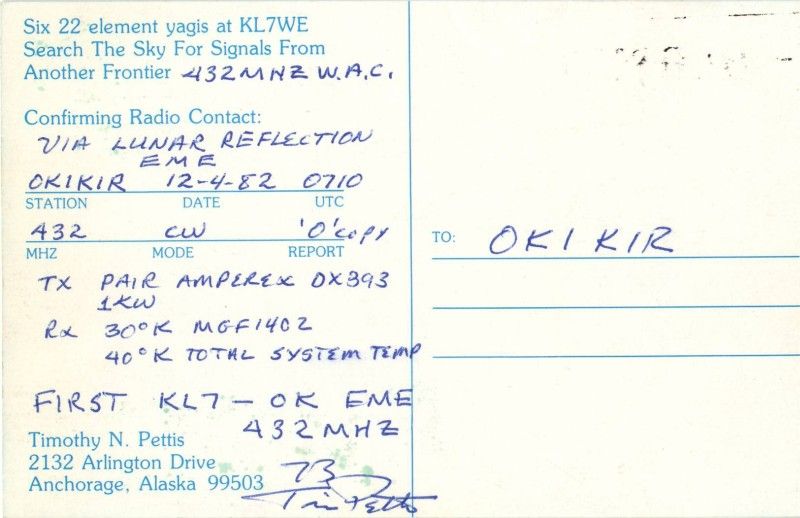 Six 22 element yagis at KL7WE
Search The Sky For Signals From
Another Frontier 432MHZ W.A.C.
Confirming Radio Contact:
VIA LUNAR REFLECTION
EME
OK1KIR 12-4-82 0710
STATION DATE UTC
432 CW 'O' copy
MHZ MODE REPORT
TX PAIR AMPEREX DX393
1KW
Rx 30°K MGF1402
40°K TOTAL SYSTEM TEMP
FIRST KL7 - OK EME
432MHZ
Timothy N. Pettis
2132 Arlington Drive
Anchorage, Alaska 99503
73
Tim Pettis
TO: OK1KIR